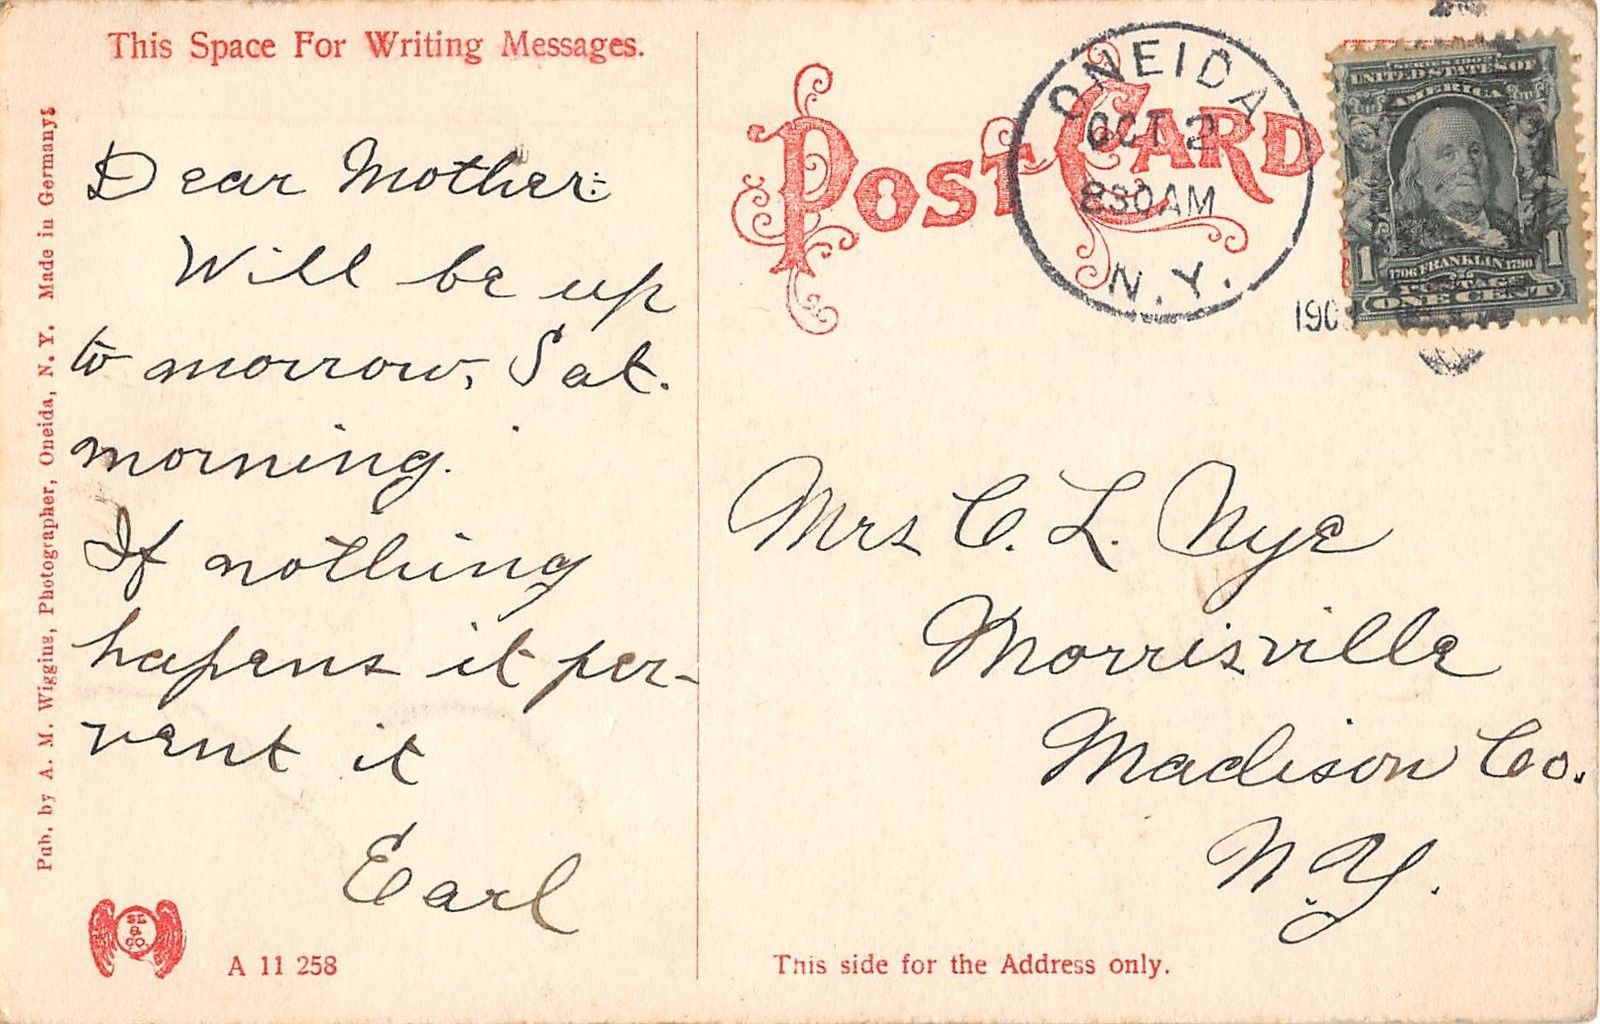 This Space For Writing Messages.
Pub. by A. M. Wiggins, Photographer, Oneida, N. Y. Made in Germany
Dear Mother:
Will be up
to morrow, Sat.
morning.
If nothing
hapens it per-
vent it
Earl
SL
&
CO.
A 11 258
POST CARD
ONEIDA
OCT 2
830AM
N.Y.
190
UNITED STATES OF
AMERICA
1 1706 FRANKLIN 1790 1
POSTAGE
ONE CENT
Mrs C. L. Nye
Morrisville
Madison Co.
N.Y.
This side for the Address only.